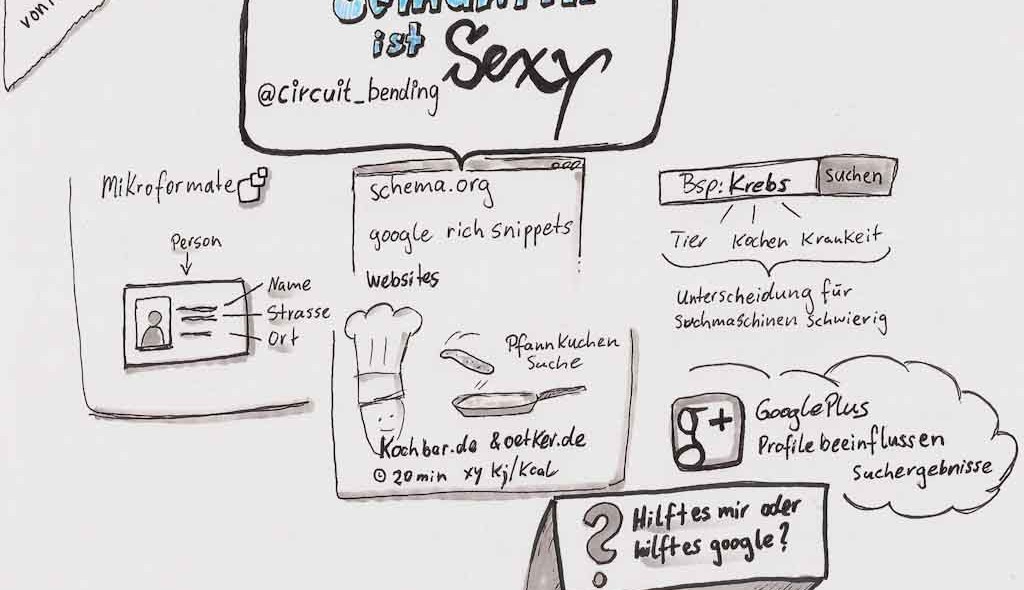 von
Semantik
ist Sexy
@circuit_bending
Mikroformate
Person
Name
Strasse
Ort
schema.org
google rich snippets
websites
Pfannkuchen
Suche
Kochbar.de & oetker.de
20 min xy Kj/Kcal
Bsp: Krebs suchen
Tier Kochen Krankeit
Unterscheidung für
Suchmaschinen Schwierig
g+
GooglePlus
Profile beeinflussen
Suchergebnisse
? Hilft es mir oder
hilft es google?